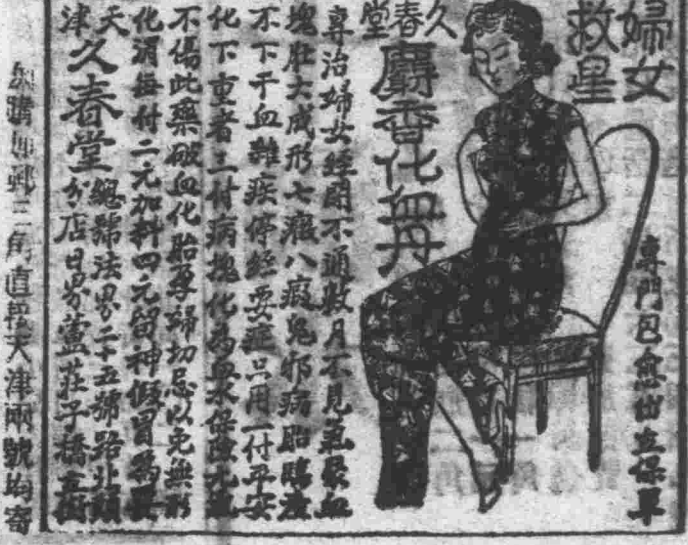 婦女
救星
專門包愈出立保單
久春堂
麝香化血丹
專治婦女經閉不通數月不見氣聚血
塊壯大成形七癥八瘕鬼邪病胎臌應
不下干血難疾停經要症只用一付平安
化下重者二付病塊化為血水保險九
不傷此藥破血化胎孕婦切忌以免無形
化消每付二元加料四元留神假冒為要
天津久春堂總號法界二十五號路北頭
分店日界蘆莊子橋立街
加郵三角直匯天津兩號均寄